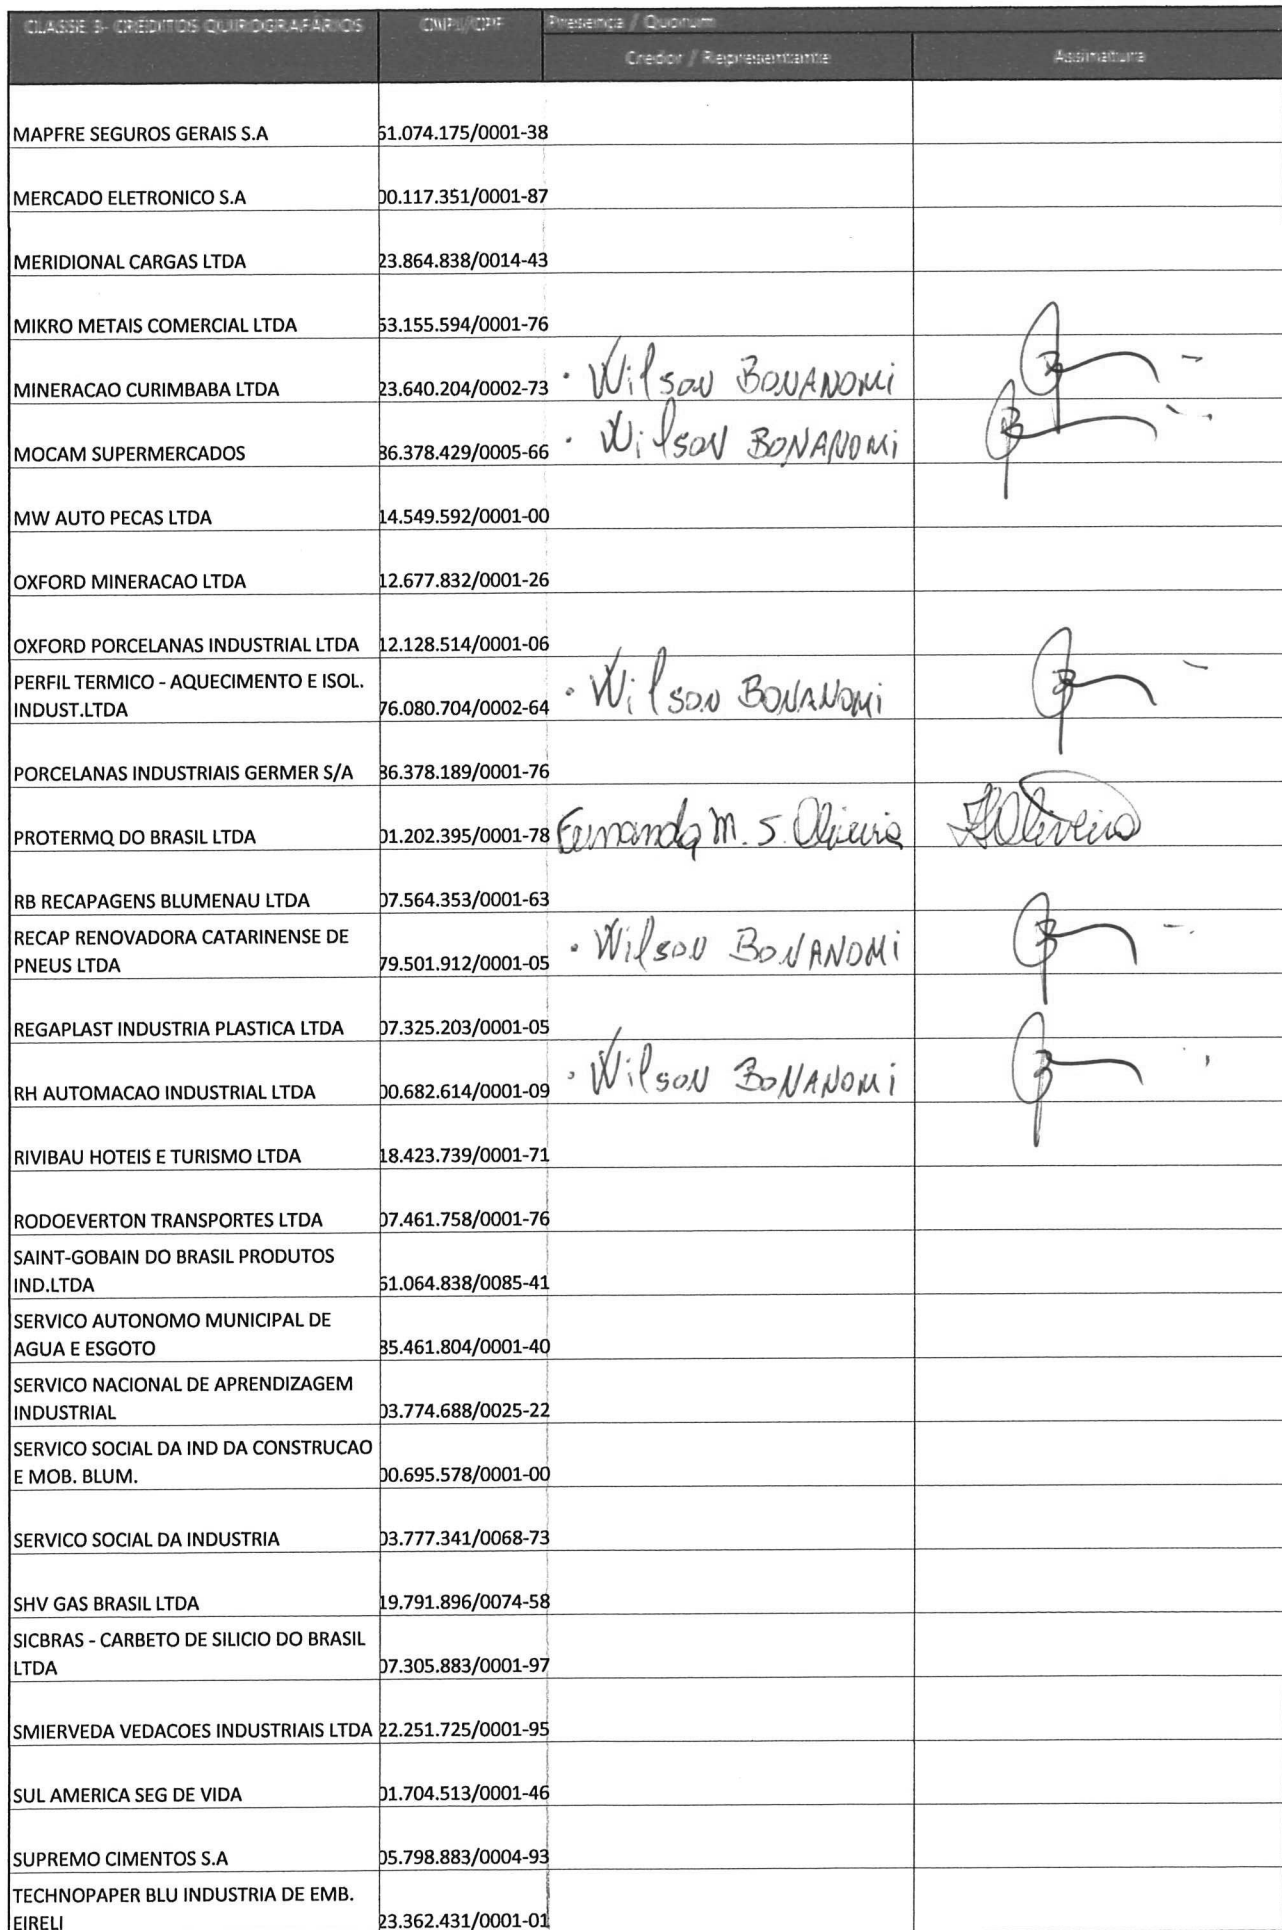 CLASSE 3- CRÉDITOS QUIROGRAFÁRIOS CNPJ/CPF Presença / Quorum
Credor / Representante Assinatura
MAPFRE SEGUROS GERAIS S.A 61.074.175/0001-38
MERCADO ELETRONICO S.A 00.117.351/0001-87
MERIDIONAL CARGAS LTDA 23.864.838/0014-43
MIKRO METAIS COMERCIAL LTDA 53.155.594/0001-76
MINERACAO CURIMBABA LTDA 23.640.204/0002-73 · Wilson BONANOMi
MOCAM SUPERMERCADOS 86.378.429/0005-66 · Wilson BONANOMi
MW AUTO PECAS LTDA 14.549.592/0001-00
OXFORD MINERACAO LTDA 12.677.832/0001-26
OXFORD PORCELANAS INDUSTRIAL LTDA 12.128.514/0001-06
PERFIL TERMICO - AQUECIMENTO E ISOL.
INDUST.LTDA 76.080.704/0002-64 · Wilson BONANOMi
PORCELANAS INDUSTRIAIS GERMER S/A 86.378.189/0001-76
PROTERMQ DO BRASIL LTDA 01.202.395/0001-78 Fernanda M. S. Oliveira FOliveira
RB RECAPAGENS BLUMENAU LTDA 07.564.353/0001-63
RECAP RENOVADORA CATARINENSE DE
PNEUS LTDA 79.501.912/0001-05 · Wilson BONANOMi
REGAPLAST INDUSTRIA PLASTICA LTDA 07.325.203/0001-05
RH AUTOMACAO INDUSTRIAL LTDA 00.682.614/0001-09 · Wilson BONANOMi
RIVIBAU HOTEIS E TURISMO LTDA 18.423.739/0001-71
RODOEVERTON TRANSPORTES LTDA 07.461.758/0001-76
SAINT-GOBAIN DO BRASIL PRODUTOS
IND.LTDA 61.064.838/0085-41
SERVICO AUTONOMO MUNICIPAL DE
AGUA E ESGOTO 85.461.804/0001-40
SERVICO NACIONAL DE APRENDIZAGEM
INDUSTRIAL 03.774.688/0025-22
SERVICO SOCIAL DA IND DA CONSTRUCAO
E MOB. BLUM. 00.695.578/0001-00
SERVICO SOCIAL DA INDUSTRIA 03.777.341/0068-73
SHV GAS BRASIL LTDA 19.791.896/0074-58
SICBRAS - CARBETO DE SILICIO DO BRASIL
LTDA 07.305.883/0001-97
SMIERVEDA VEDACOES INDUSTRIAIS LTDA 22.251.725/0001-95
SUL AMERICA SEG DE VIDA 01.704.513/0001-46
SUPREMO CIMENTOS S.A 05.798.883/0004-93
TECHNOPAPER BLU INDUSTRIA DE EMB.
EIRELI 23.362.431/0001-01